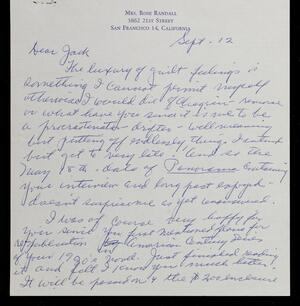 Mrs. Rose Randall
3862 21st Street
San Francisco 14, California
Sept. 12
Dear Jack
The luxury of guilt feelings is
something I cannot permit myself
otherwise I would die of chagrin - remorse
or what have you since it is me to be
a procrastinator - drifter - well meaning
but putting off endlessly things I intend
but get to very late. And so the
May 15th date of Panorama containing
your interview and long past enjoyed -
doesn't surprise me as yet unanswered.
I was of course very happy for
you since you first mentioned plans for
republication by American Century Series
of your 1920's novel. Just finished reading
it and felt I know you much better.
It will be passed on & the enclosure